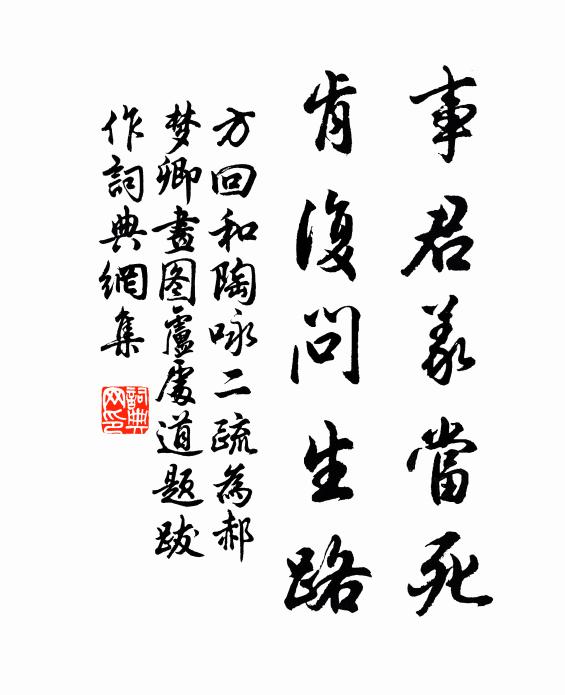 事君義當死
肯復問生路
方回和陶咏二疏為郝
梦卿畫图盧處道题跋
作詞典網集
詞典网印